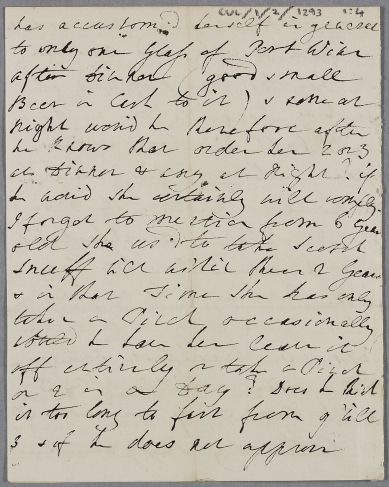 CUL/1/2/1293 1:4
has accustomed herself in general
to only one Glass of Port Wine
after Dinner (good small
Beer in Cask to it) & none at
Night would he therefore after
he knows that order her 2 or 3
at Dinner & any at Night? if
he would she certainly will comply
I forgot to mention from 6 Years
old she used to take Scotch
Snuff till within these 2 Years
& in that Time she has only
taken a Pinch occasionally
would he have her leave it
off entirely or take a Pinch
or 2 in a Day? Does he think
it too long to fast from 9 till
3 & if he does not approve